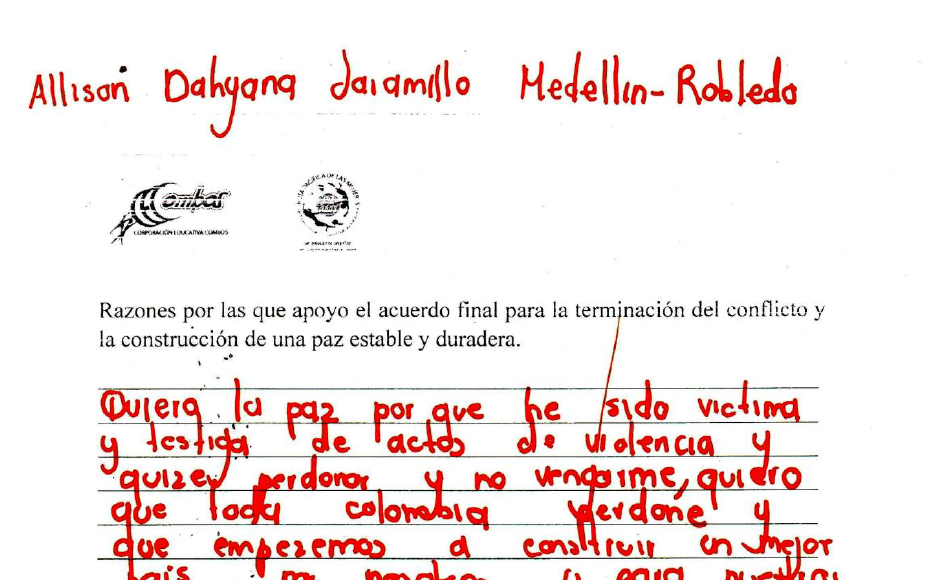 Allison Dahyana Jaramillo Medellin-Robledo
Combos
CORPORACIÓN EDUCATIVA COMBOS
RUTA PACIFICA DE LAS MUJERES
Razones por las que apoyo el acuerdo final para la terminación del conflicto y
la construcción de una paz estable y duradera.
Quiero la paz por que he sido victima
y testiga de actos de violencia y
perdonar y no vengarme, quiero
que toda colombia perdone y
que empezemos a construir un mejor
pais para